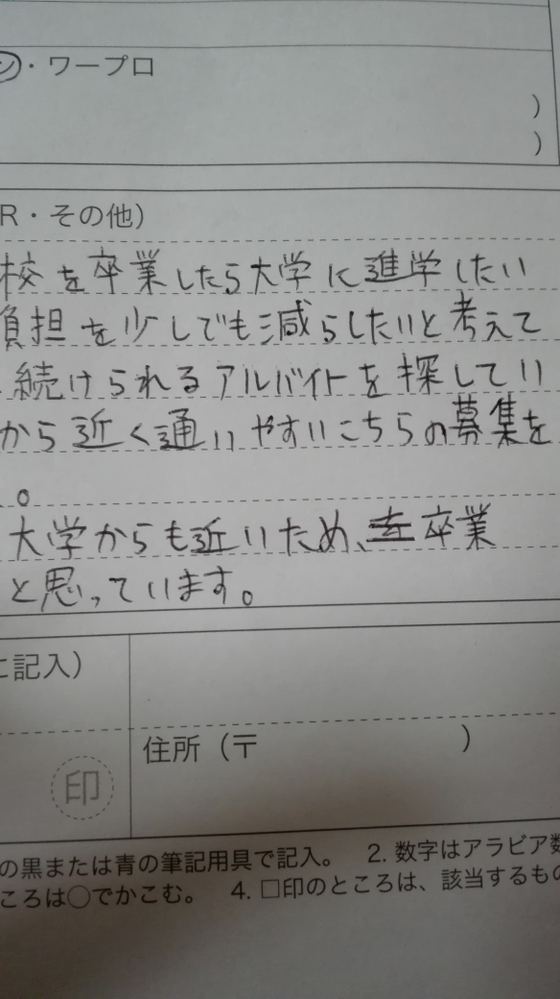 ン・ワープロ
)
)
R・その他)
校を卒業したら大学に進学したい
負担を少しでも減らしたいと考えて
続けられるアルバイトを探してい
から近く通いやすいこちらの募集を
。
大学からも近いため、卒業
と思っています。
に記入)
住所(〒 )
印
の黒または青の筆記用具で記入。 2. 数字はアラビア数
ころは○でかこむ。 4. □印のところは、該当するもの